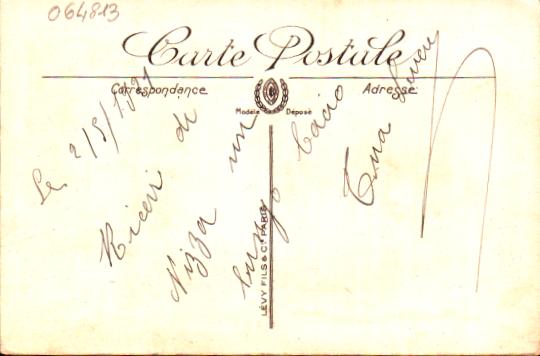 064813
Carte Postale
Correspondance
Adresse
Modèle Déposé
LÉVY FILS & Cie PARIS
Le 2/5/1921
Ricevi di
Nizza un
lungo bacio
Tua